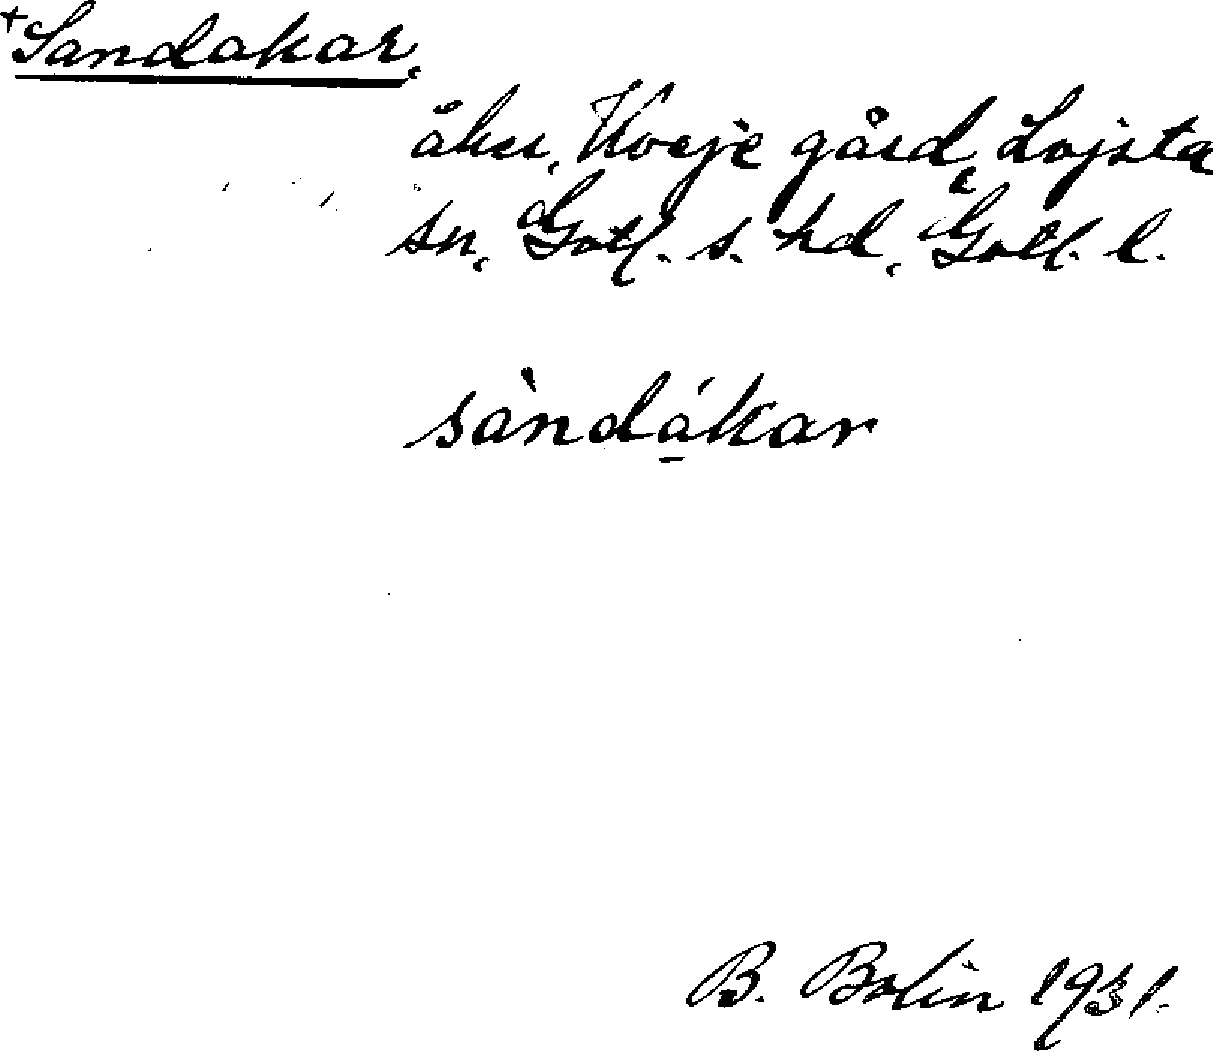 +Sandakar,
åker, Kveje gård, Lojsta
sn, Gotl. s. hd, Gotl. l.
sàndákar
B. Bolin 1931.